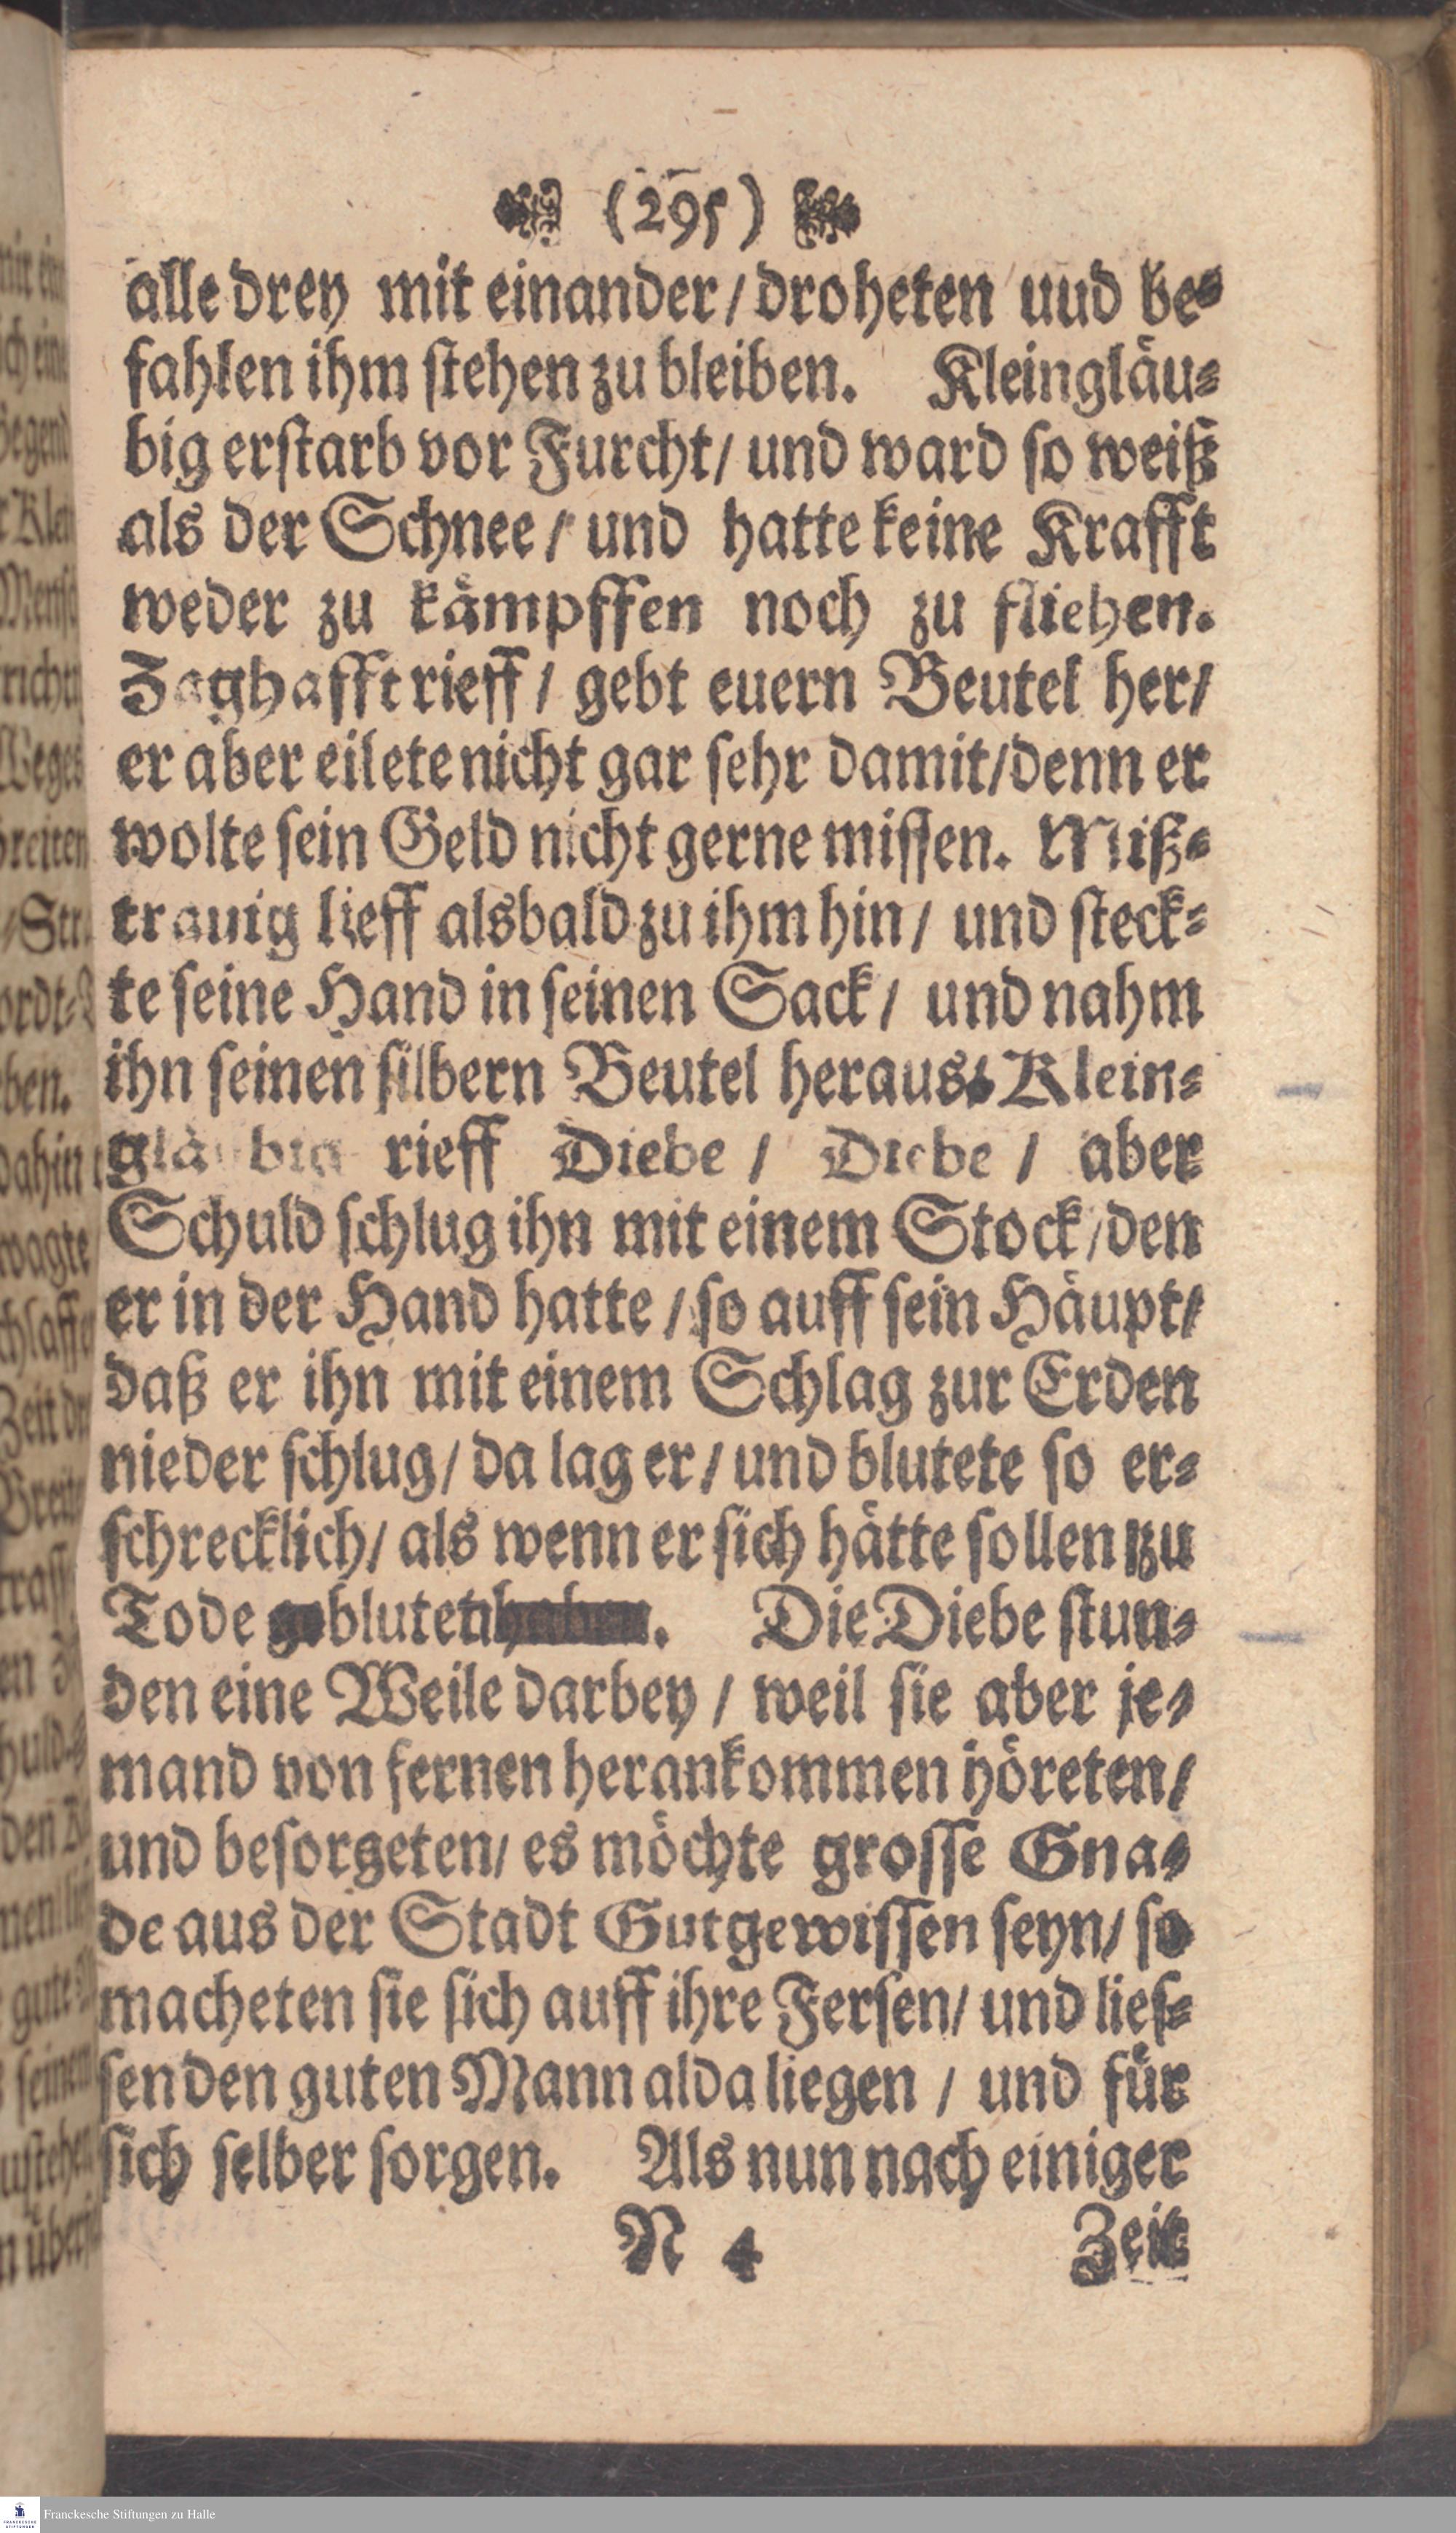 (295)
alle drey mit einander / droheten uud be-
fahlen ihm stehen zu bleiben. Kleingläu-
big erstarb vor Furcht / und ward so weiß
als der Schnee / und hatte keine Krafft
weder zu kämpffen noch zu fliehen.
Zaghafft rieff / gebt euern Beutel her /
er aber eilete nicht gar sehr damit / denn er
wolte sein Geld nicht gerne missen. Miß-
trauig lieff alsbald zu ihm hin / und steck-
te seine Hand in seinen Sack / und nahm
ihn seinen silbern Beutel heraus. Klein-
gläubig rieff Diebe / Diebe / aber
Schuld schlug ihn mit einem Stock / den
er in der Hand hatte / so auff sein Häupt /
daß er ihn mit einem Schlag zur Erden
nieder schlug / da lag er / und blutete so er-
schrecklich / als wenn er sich hätte sollen zu
Tode gebluten haben. Die Diebe stun-
den eine Weile darbey / weil sie aber je-
mand von fernen herankommen höreten /
und besorgeten / es möchte grosse Gna-
de aus der Stadt Gutgewissen seyn / so
macheten sie sich auff ihre Fersen / und lies-
sen den guten Mann alda liegen / und für
sich selber sorgen. Als nun nach einiger
N 4 Zeit
Franckesche Stiftungen zu Halle